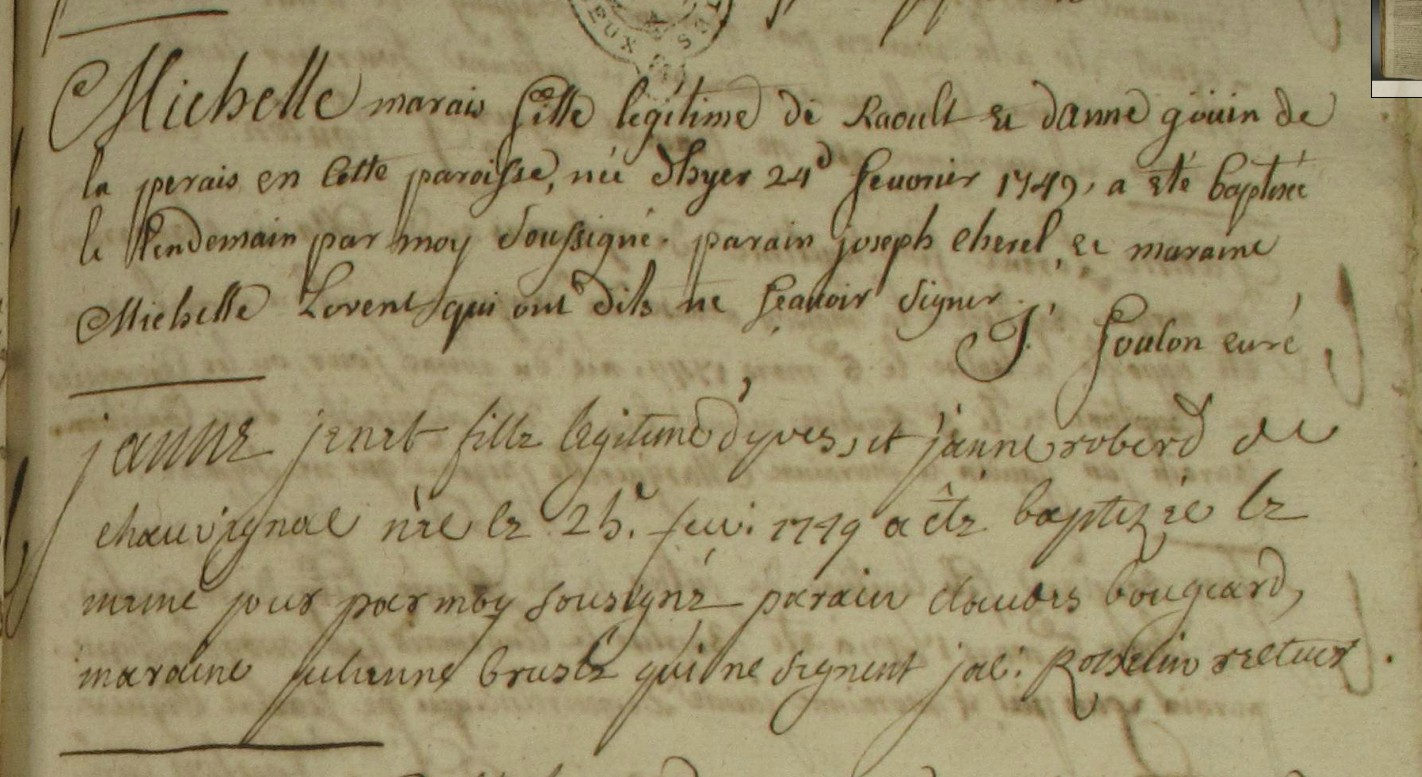 Michelle marais fille legitime de Raoult & danne gouin de
la perais en cette paroisse, née d'hyer 24e feuvrier 1749, a été baptisée
le lendemain par moy soussigné. parain joseph cherel, & maraine
Michelle Lorent qui ont dits ne sçauoir signer.
J. foulon curé
janne jenet fille legitime d'yves, et janne roberd de
chauvignal née le 25. feu. 1749 a été baptizée le
mesme jour par moy sousigné parain claudes bougeard,
maraine julienne bruslé qui ne signent jac: Rosselin recteur.